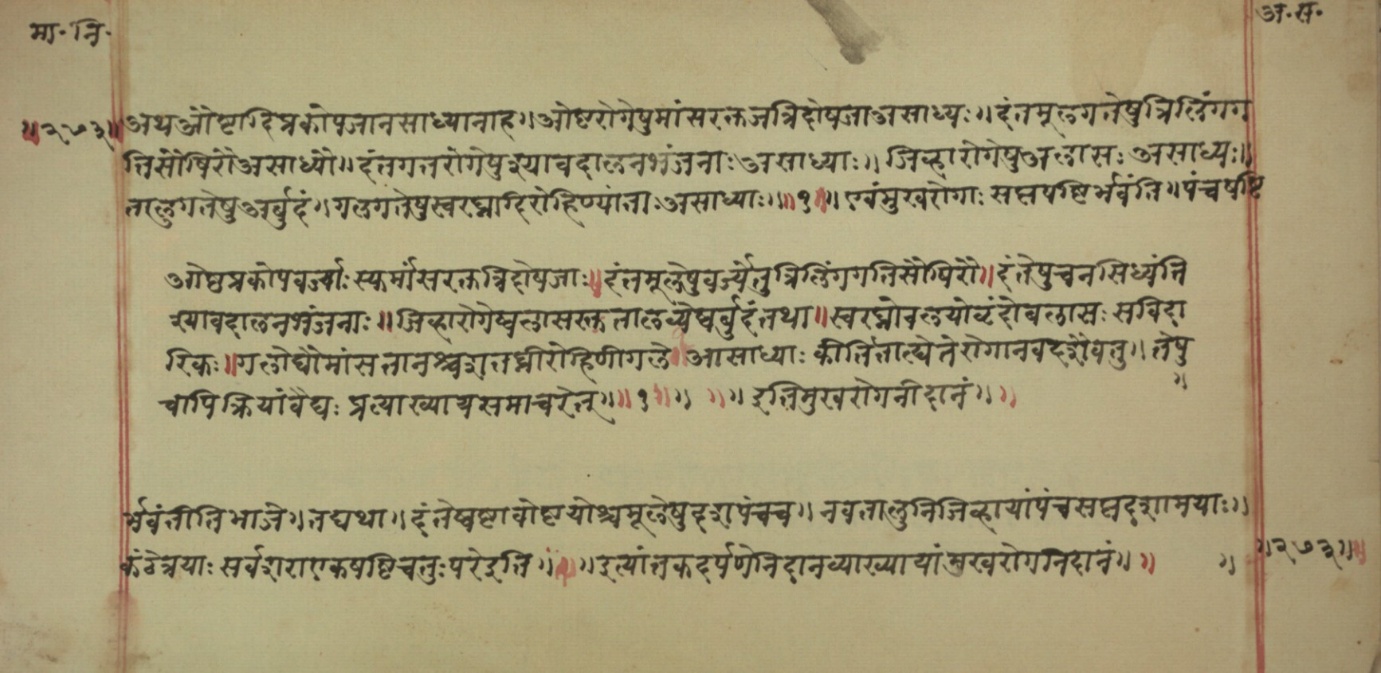 मा·नि·
अ·स·
॥२७३॥
अथओष्टादिप्रकोपजानसाध्यानाह॥ओष्टरोगेषुमांसरक्तजत्रिदोषजाअसाध्यः॥दंतमूलगतेषुत्रिलिंगग
तिसौषिरौअसाध्यौ॥दंतगतरोगेषुश्यावदालनभंजनाःअसाध्याः॥जिव्हारोगेषुअलासःअसाध्यः॥
तालुगतेषुअर्बुदं॥गलगतेषुस्वरघ्नादिरोहिण्यांताःअसाध्याः॥॥१॥॥एवंमुखरोगाःसप्तषष्टिर्भवंति॥पंचषष्टि
ओष्ठप्रकोपवर्ज्याःस्यर्मांसरक्तत्रिदोषजाः॥दंतमूलेषुवर्ज्यैतुत्रिलिंगगतिसौषिरौ॥दंतेषुचनसिध्यंति
श्यावदालनभंजनाः॥जिव्हारोगेष्वलासस्तुतालव्येष्वर्बुदंतथा॥स्वरघ्नोवलयोवृंदोबलासः सविदा
रिकः॥गलोघौमांसतानश्चशतघ्नीरोहिणीगले॥आसाध्याः कीर्तिताह्येतेरोगानवदशैवतु॥तेषु
चापिक्रियांवैद्यः प्रत्याख्यायसमाचरेत्॥॥१॥॥ ॥॥इतिमुखरोगनीदानं॥॥
र्भवंतीतिभोजे॥तद्यथा॥दंतेष्वष्टावोष्टयोश्चमूलेषुदशपंचच॥नवतालुनिजिव्हायांपंचसप्तदशामयाः॥
कंठेत्रयाः सर्वशराएकषष्टिचतुःपरेइति॥॥॥इत्यांतकदर्पणेनिदानव्याख्यायांमुखरोगनिदानं॥॥ ॥
॥२७३॥